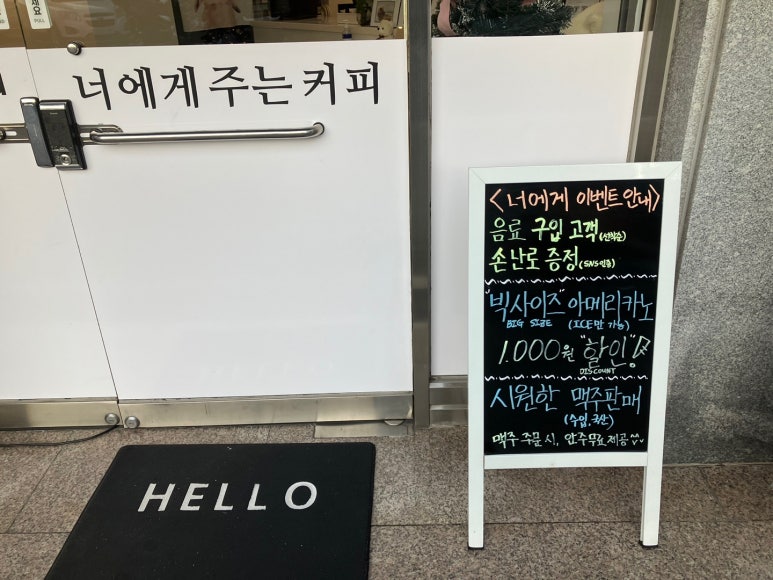 세요
PULL
너에게 주는 커피
<너에게 이벤트 안내>
음료 구입 고객 (선착순)
손난로 증정 (SNS인증)
"빅사이즈" 아메리카노
BIG SIZE (ICE만 가능)
1.000원 "할인"!
DISCOUNT
시원한 맥주판매
(수입, 국산)
맥주 주문 시, 안주무료제공^^
HELLO